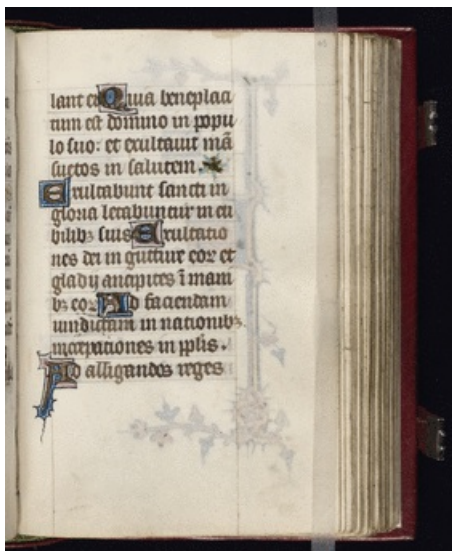 lant ei Quia beneplaci
tum est domino in popu
lo suo: et exultauit mā
suetos in salutem.
Exultabunt sancti in
gloria letabuntur in cu
bilibꝫ suis Exultatio
nes dei in gutture eoꝝ et
gladij ancipites ī mani
bꝫ eoꝝ Ad faciendam
uindictam in nationibꝫ
increpationes in pplis.
Ad alligandos reges